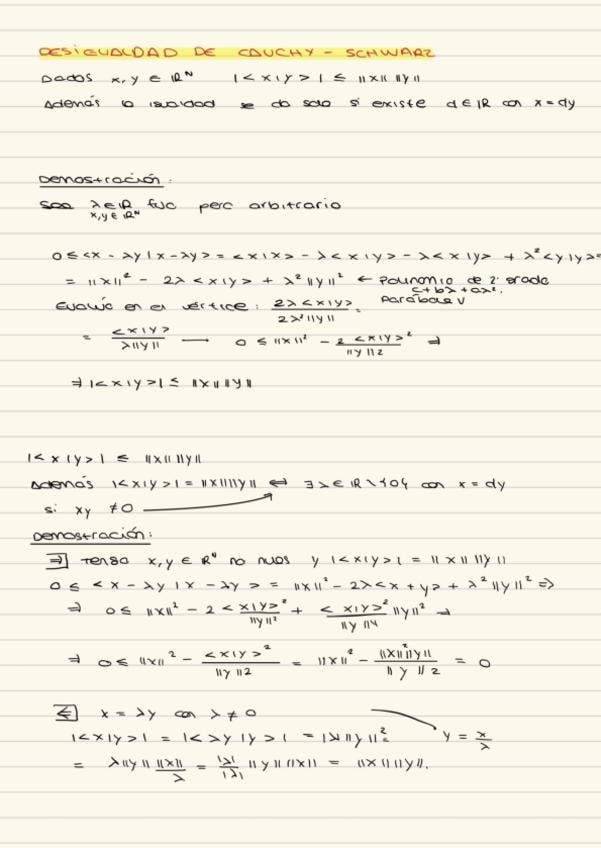 DESIGUALDAD DE CAUCHY - SCHWARZ
Dados x, y ∈ ℝᴺ |<x|y>| ≤ ||x|| ||y||
Además la igualdad se da solo si existe d ∈ ℝ con x = dy
Demostración:
Sea λ ∈ ℝ fijo pero arbitrario
x, y ∈ ℝᴺ
0 ≤ <x - λy | x - λy> = <x|x> - λ<x|y> - λ<x|y> + λ²<y|y> =
= ||x||² - 2λ<x|y> + λ²||y||² ← Polinomio de 2º grado
c + bλ + aλ².
Evalúo en el vértice: 2λ<x|y> / 2λ²||y|| = Parábola V
= <x|y> / λ||y|| — 0 ≤ ||x||² - 2<x|y>² / ||y||2 ⇒
⇒ |<x|y>| ≤ ||x|| ||y||
|<x|y>| ≤ ||x|| ||y||
Además |<x|y>| = ||x|| ||y|| ⇔ ∃ λ ∈ ℝ \ {0} con x = dy
si xy ≠ 0
Demostración:
⇒ Tengo x, y ∈ ℝᴺ no nulos y |<x|y>| = ||x|| ||y||
0 ≤ <x - λy | x - λy> = ||x||² - 2λ<x+y> + λ²||y||² ⇒
⇒ 0 ≤ ||x||² - 2 <x|y>² / ||y||² + <x|y>² / ||y||4 ||y||² ⇒
⇒ 0 ≤ ||x||² - <x|y>² / ||y||2 = ||x||² - ||x||²||y|| / ||y||2 = 0
⇐ x = λy con λ ≠ 0
|<x|y>| = |<λy|y>| = |λ| ||y||² = y = x/λ
= λ||y|| ||x||/λ = |λ|/|λ| ||y|| ||x|| = ||x|| ||y||.